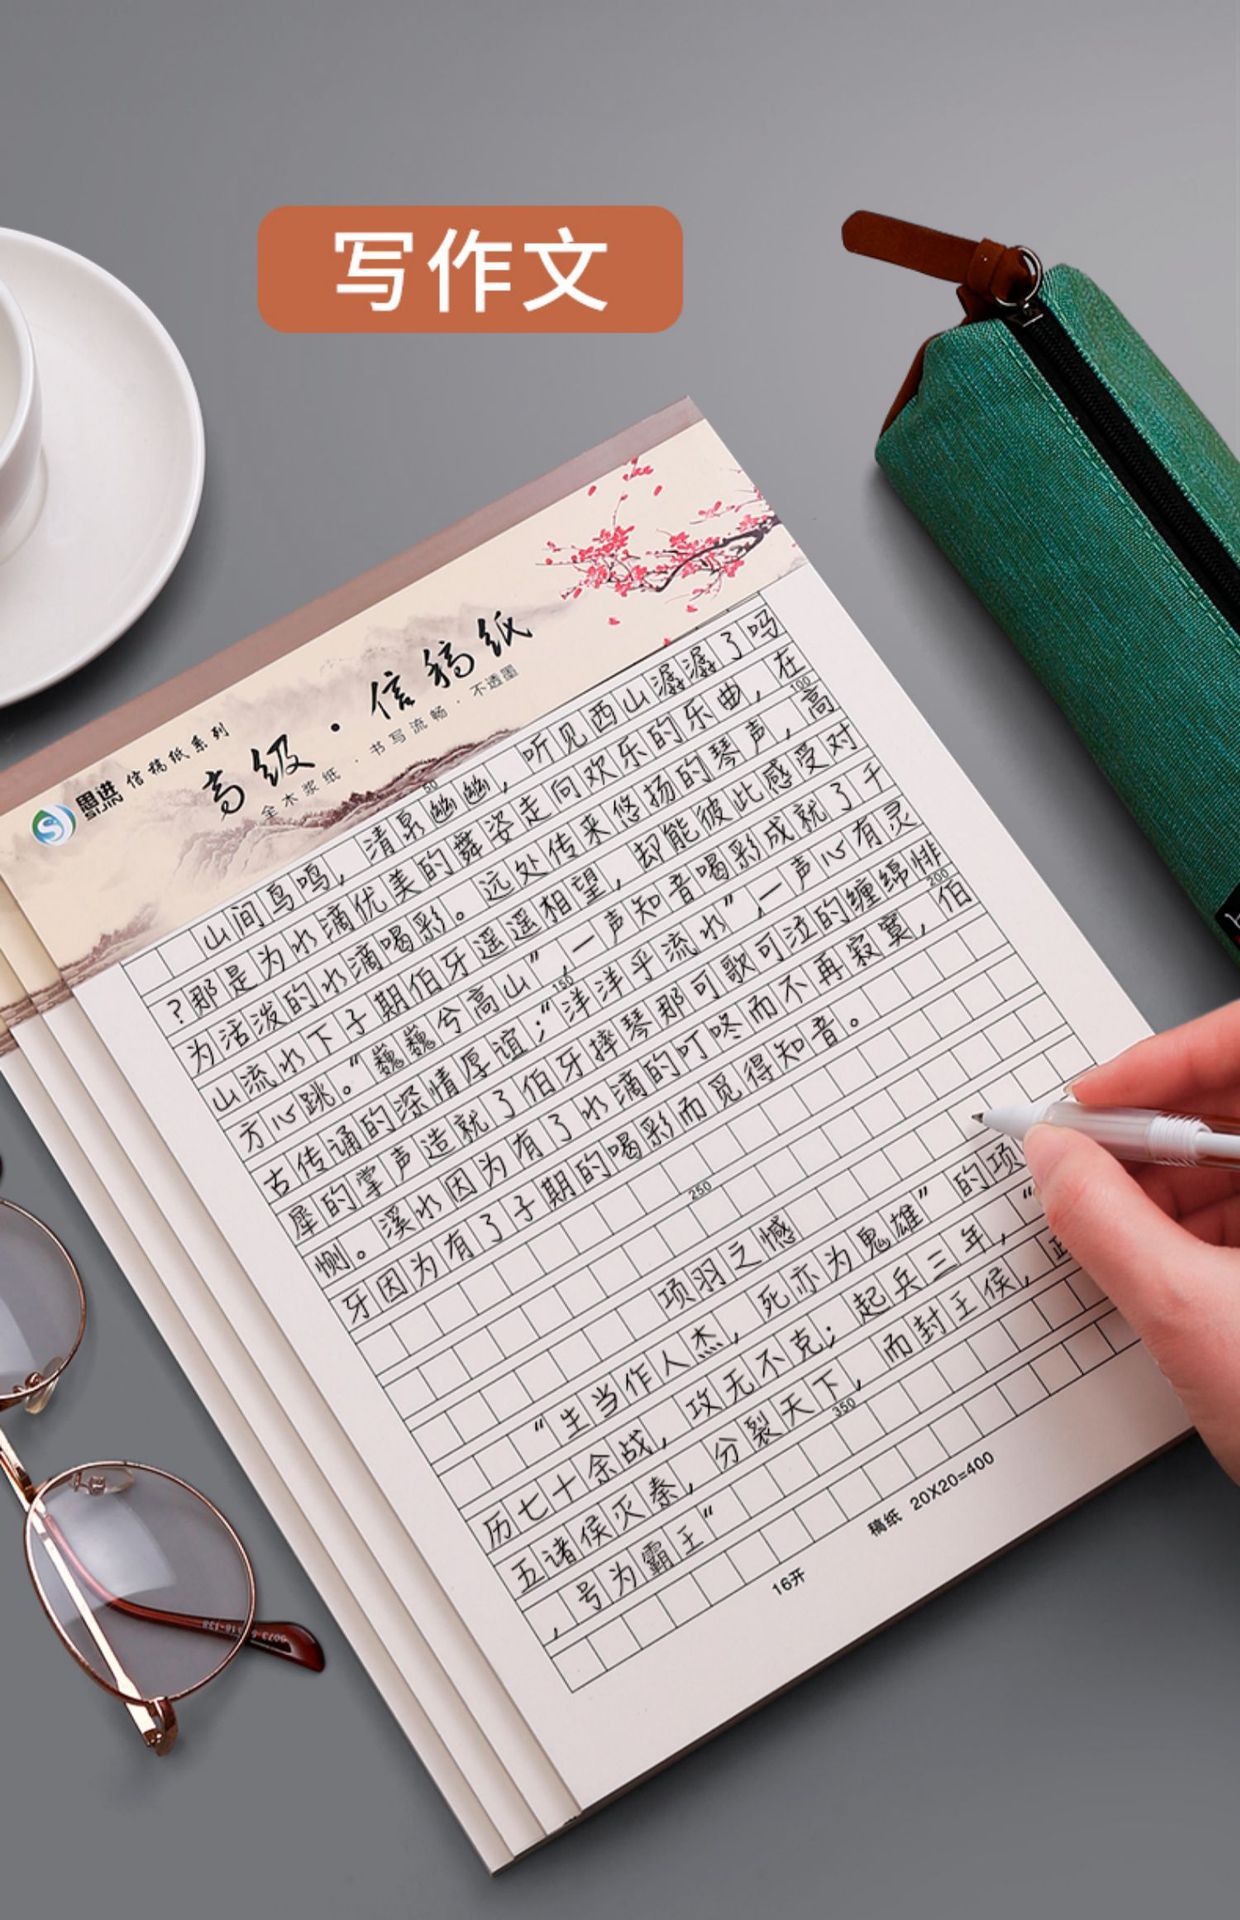 写作文
思进
SIJIN
信稿纸系列
高级·信稿纸
全木浆纸·书写流畅·不透墨
山间鸟鸣，清泉幽幽，听见西山潺潺了吗
50
？那是为水滴优美的舞姿走向欢乐的乐曲，在
100
为活泼的水滴喝彩。远处传来悠扬的琴声，高
山流水下子期伯牙遥遥相望，却能彼此感受对
方心跳。“巍巍兮高山”，一声知音喝彩成就了千
150
古传诵的深情厚谊；“洋洋乎流水”，一声心有灵
犀的掌声造就了伯牙摔琴那可歌可泣的缠绵悱
200
恻。溪水因为有了水滴的叮咚而不再寂寞，伯
牙因为有了子期的喝彩而觅得知音。
250
项羽之憾
“生当作人杰，死亦为鬼雄”的项
历七十余战，攻无不克；起兵三年，“
五诸侯灭秦，分裂天下，而封王侯，
350
，号为霸王”
16开
稿纸 20X20=400